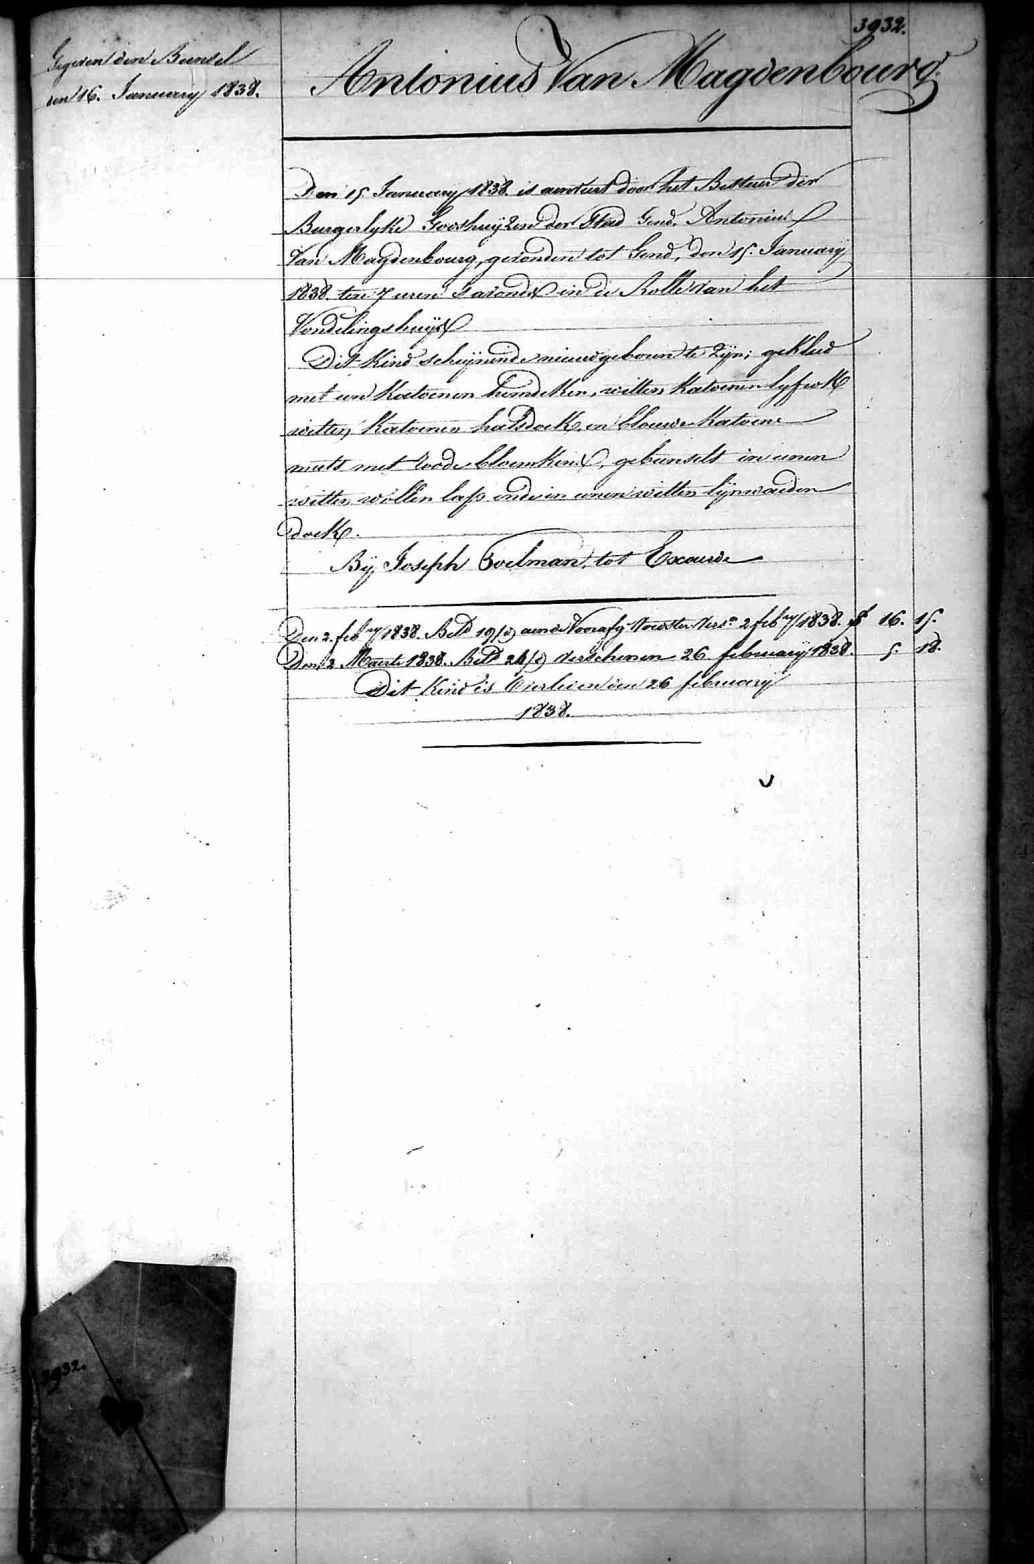 3932.
Gegeven den Bunsel
den 16. January 1838.
Antonius Van Magdenbourg.
Den 15 January 1838. is aenveird door het Bestuer der
Burgerlyke Godshuyzen der Stad Gend. Antonius
Van Magdenbourg, gevonden tot Gend, den 15. January
1838. ten 7 uren s'avonds in de Rolle van het
Vondelingshuys
Dit Kind scheynende nieuwgeboren te zyn; gekleed
met een Katoenen hemdeken, witten Katoenen lyfrok
witten Katoenen halsdoek en blauwe Katoene
muts met roode bloemkens, gebunselt in eenen
witten wollen lap ende in eenen witten lynwaeden
doek.
By Joseph Coelman tot Excaerde
Den 2. feb.ry 1838. Bet.d 19/d aen de Voorafg. Voedster Vers.n 2 feb.ry 1838. f 16. 15.
Den 2 Maerte 1838. Bet.d 24/d Verschenen 26 february 1838. 5. 18.
Dit Kind is Overleden den 26 february
1838.
3932.